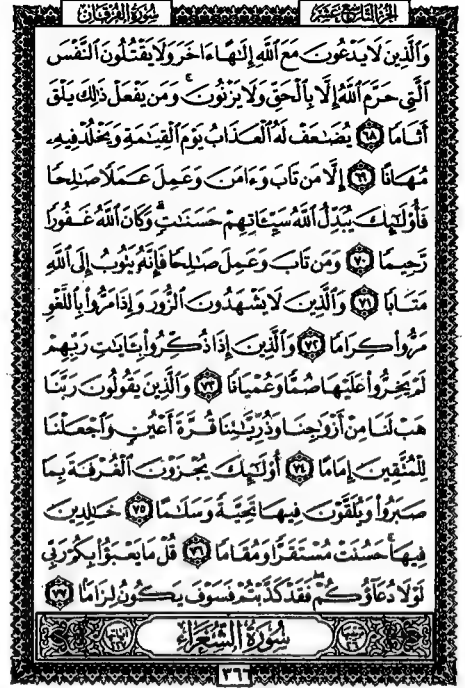 الجزء التاسع عشر
سُورَةُ الفُرْقَان
وَالَّذِينَ لَا يَدْعُونَ مَعَ اللَّهِ إِلَٰهًا ءَاخَرَ وَلَا يَقْتُلُونَ النَّفْسَ
الَّتِي حَرَّمَ اللَّهُ إِلَّا بِالْحَقِّ وَلَا يَزْنُونَ ۚ وَمَن يَفْعَلْ ذَٰلِكَ يَلْقَ
أَثَامًا ٦٨ يُضَٰعَفْ لَهُ الْعَذَابُ يَوْمَ الْقِيَٰمَةِ وَيَخْلُدْ فِيهِۦ
مُهَانًا ٦٩ إِلَّا مَن تَابَ وَءَامَنَ وَعَمِلَ عَمَلًا صَٰلِحًا
فَأُو۟لَٰٓئِكَ يُبَدِّلُ اللَّهُ سَيِّـَٔاتِهِمْ حَسَنَٰتٍ ۗ وَكَانَ اللَّهُ غَفُورًا
رَّحِيمًا ٧٠ وَمَن تَابَ وَعَمِلَ صَٰلِحًا فَإِنَّهُۥ يَتُوبُ إِلَى اللَّهِ
مَتَابًا ٧١ وَالَّذِينَ لَا يَشْهَدُونَ الزُّورَ وَإِذَا مَرُّوا۟ بِاللَّغْوِ
مَرُّوا۟ كِرَامًا ٧٢ وَالَّذِينَ إِذَا ذُكِّرُوا۟ بِـَٔايَٰتِ رَبِّهِمْ
لَمْ يَخِرُّوا۟ عَلَيْهَا صُمًّا وَعُمْيَانًا ٧٣ وَالَّذِينَ يَقُولُونَ رَبَّنَا
هَبْ لَنَا مِنْ أَزْوَٰجِنَا وَذُرِّيَّٰتِنَا قُرَّةَ أَعْيُنٍ وَاجْعَلْنَا
لِلْمُتَّقِينَ إِمَامًا ٧٤ أُو۟لَٰٓئِكَ يُجْزَوْنَ الْغُرْفَةَ بِمَا
صَبَرُوا۟ وَيُلَقَّوْنَ فِيهَا تَحِيَّةً وَسَلَٰمًا ٧٥ خَٰلِدِينَ
فِيهَا ۚ حَسُنَتْ مُسْتَقَرًّا وَمُقَامًا ٧٦ قُلْ مَا يَعْبَؤُا۟ بِكُمْ رَبِّي
لَوْلَا دُعَآؤُكُمْ ۖ فَقَدْ كَذَّبْتُمْ فَسَوْفَ يَكُونُ لِزَامًا ٧٧
سُورَةُ الشُّعَرَاءِ
٣٦٦